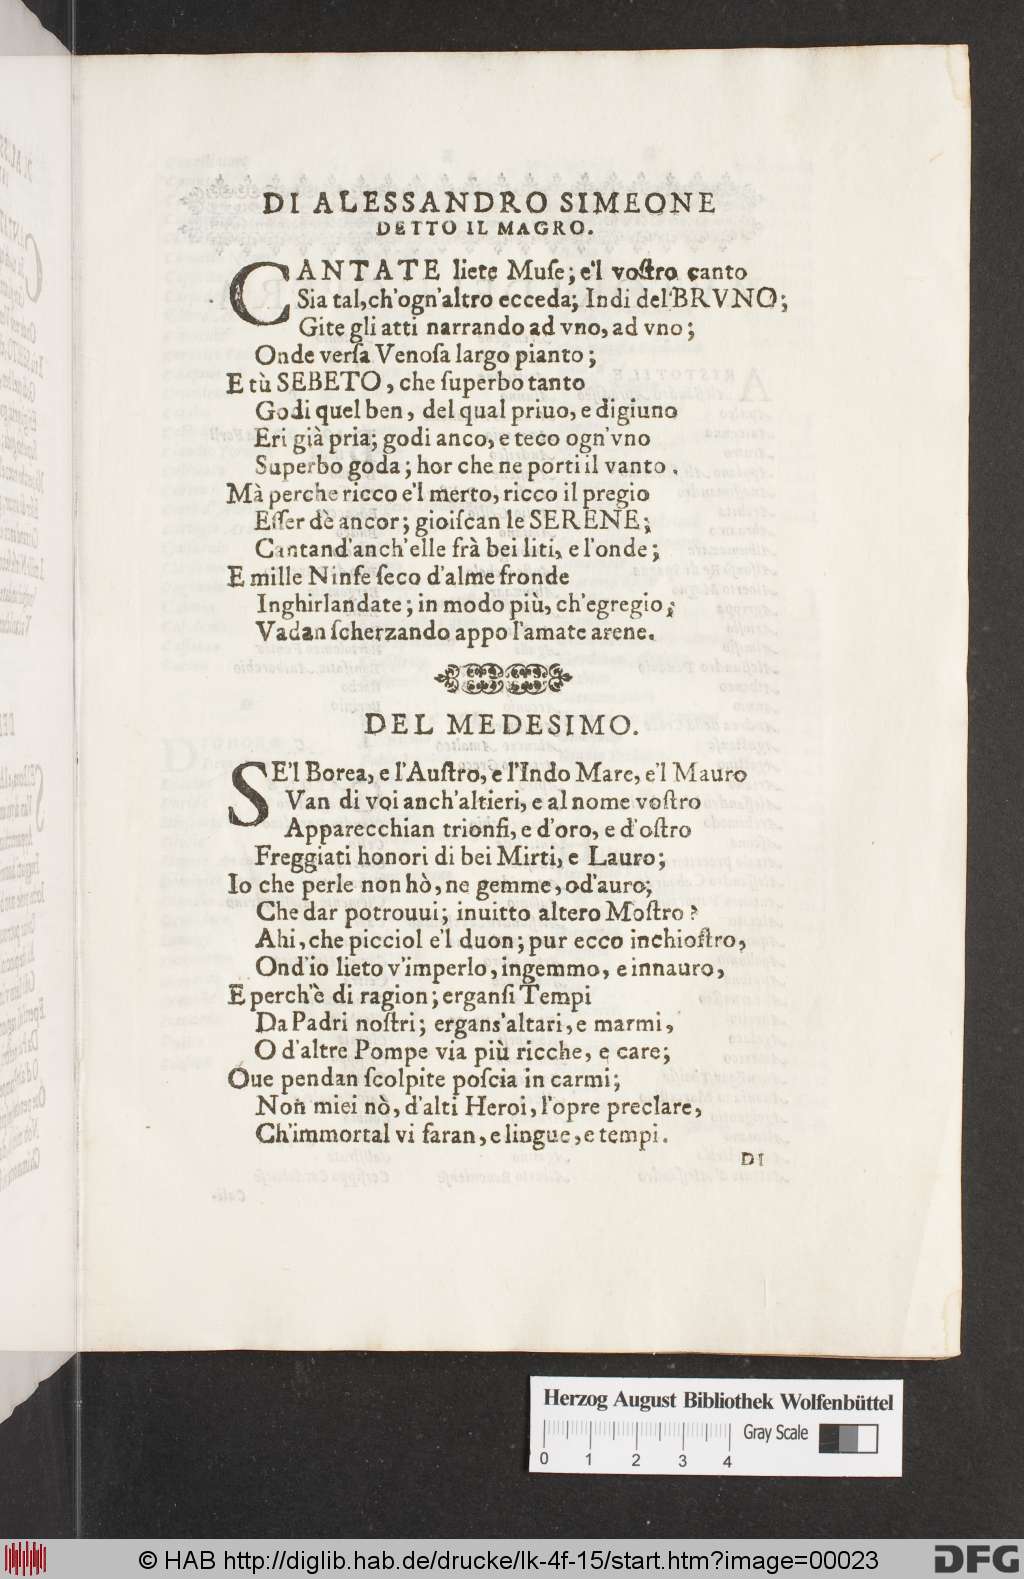 DI ALESSANDRO SIMEONE
DETTO IL MAGRO.
CANTATE liete Muſe; e'l voſtro canto
Sia tal, ch'ogn'altro ecceda; Indi del BRVNO;
Gite gli atti narrando ad vno, ad vno;
Onde verſa Venoſa largo pianto;
E tù SEBETO, che ſuperbo tanto
Godi quel ben, del qual priuo, e digiuno
Eri già pria; godi anco, e teco ogn'vno
Superbo goda; hor che ne porti il vanto.
Mà perche ricco e'l merto, ricco il pregio
Eſſer dè ancor; gioiſcan le SERENE;
Cantand'anch'elle frà bei liti, e l'onde;
E mille Ninfe ſeco d'alme fronde
Inghirlandate; in modo più, ch'egregio;
Vadan ſcherzando appo l'amate arene.
DEL MEDESIMO.
SE'l Borea, e l'Auſtro, e l'Indo Mare, e'l Mauro
Van di voi anch'altieri, e al nome voſtro
Apparecchian trionfi, e d'oro, e d'oſtro
Freggiati honori di bei Mirti, e Lauro;
Io che perle non hò, ne gemme, od'auro;
Che dar potrouui; inuitto altero Moſtro?
Ahi, che picciol e'l duon; pur ecco inchioſtro,
Ond'io lieto v'imperlo, ingemmo, e innauro,
E perch'è di ragion; erganſi Tempi
Da Padri noſtri; ergans'altari, e marmi,
O d'altre Pompe via più ricche, e care;
Oue pendan ſcolpite poſcia in carmi;
Non miei nò, d'alti Heroi, l'opre preclare,
Ch'immortal vi faran, e lingue, e tempi.
DI
Herzog August Bibliothek Wolfenbüttel
Gray Scale
0 1 2 3 4
© HAB http://diglib.hab.de/drucke/lk-4f-15/start.htm?image=00023
DFG